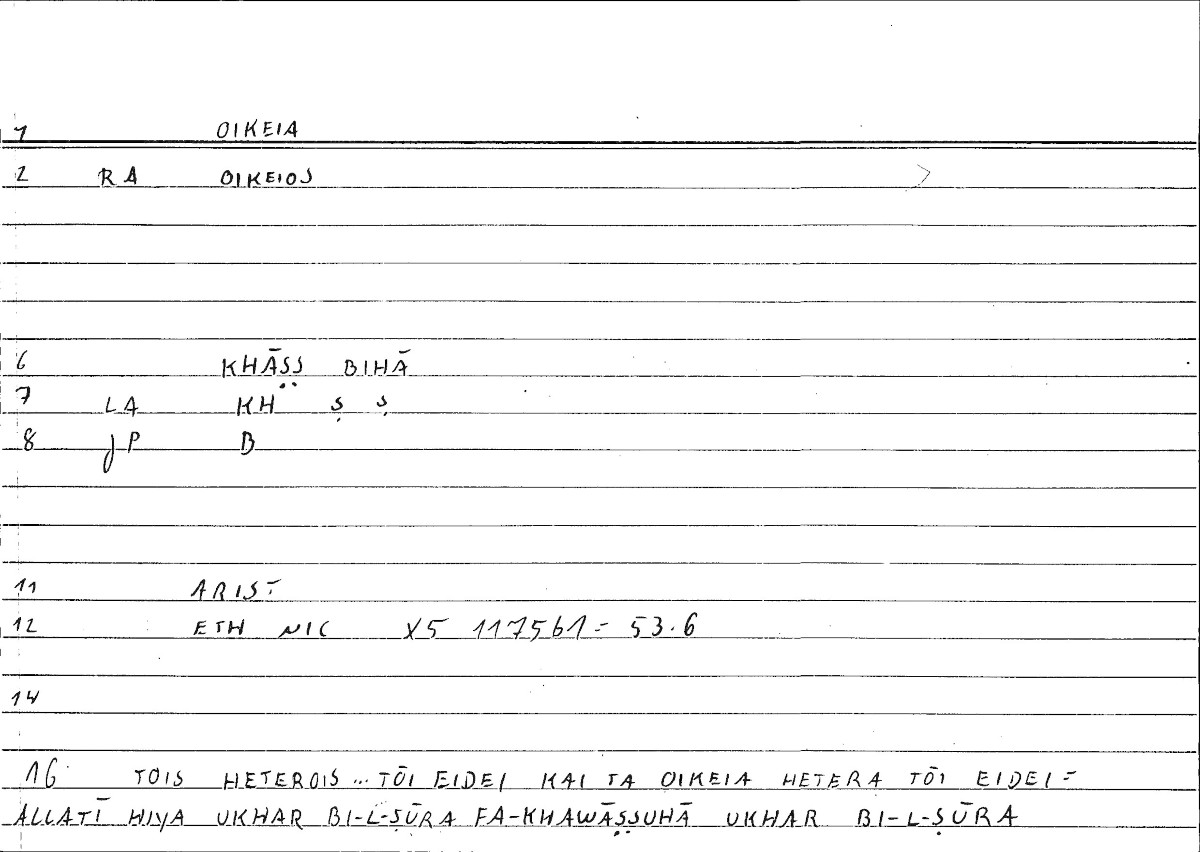 1 OIKEIA
2 RA OIKEIOS >
6 KHĀṢṢ BIHĀ
7 LA KH Ṣ Ṣ
8 JP B
11 ARIST
12 ETH NIC X5 1175b1 = 53.6
14
16 TOIS HETEROIS ... TŌI EIDEI KAI TA OIKEIA HETERA TŌI EIDEI =
ALLATĪ HIYA UKHAR BI-L-ṢŪRA FA-KHAWĀṢṢUHĀ UKHAR BI-L-ṢŪRA